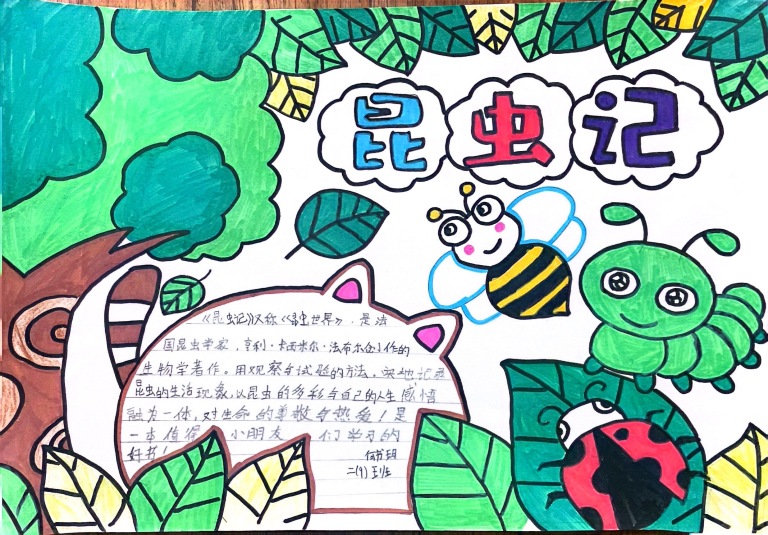 昆虫记
《昆虫记》又称《昆虫世界》,是法
国昆虫学家,亨利·卡西米尔·法布尔创作的
生物学著作。用观察与试验的方法,实地记录
昆虫的生活现象,以昆虫的多彩与自己的人生感悟
融为一体,对生命的尊敬与热爱!是
一本值得 小朋友 们学习的
好书!
二(9)班